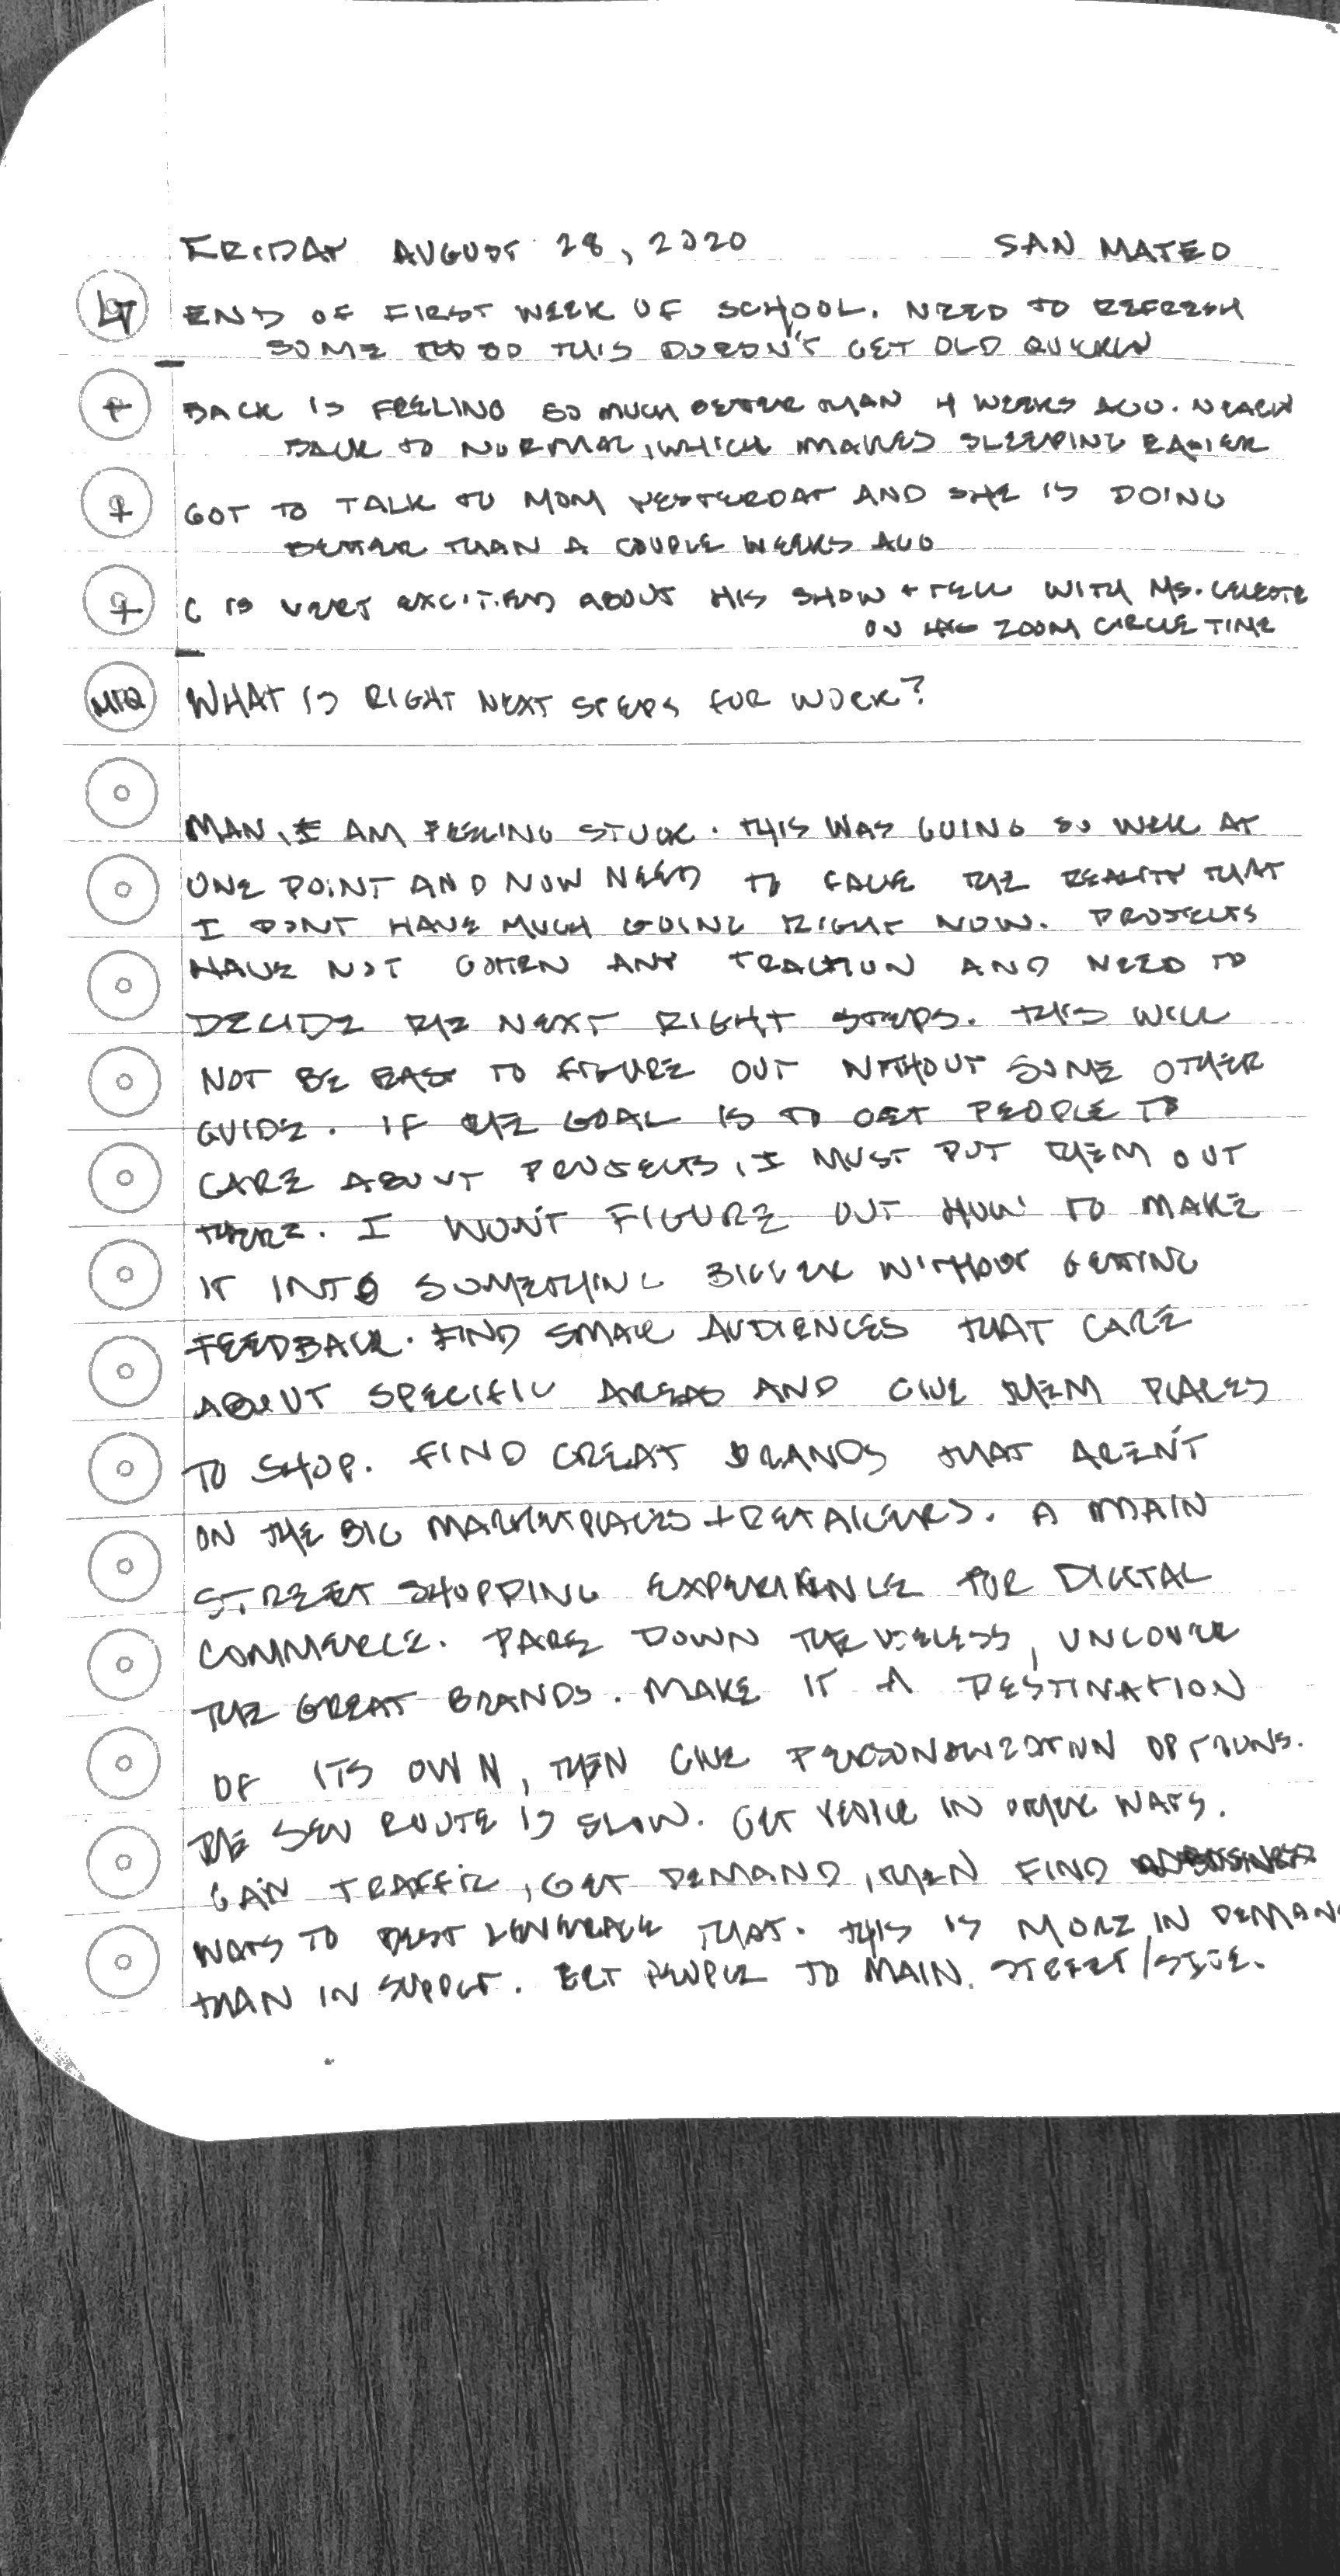 FRIDAY AUGUST 28, 2020 SAN MATEO
LT END OF FIRST WEEK OF SCHOOL. NEED TO REFRESH
SOME SO THIS DOESN'T GET OLD QUICKLY
+ BACK IS FEELING SO MUCH BETTER THAN 4 WEEKS AGO. NEARLY
BACK TO NORMAL, WHICH MAKES SLEEPING EASIER
+ GOT TO TALK TO MOM YESTERDAY AND SHE IS DOING
BETTER THAN A COUPLE WEEKS AGO
+ C IS VERY EXCITED ABOUT HIS SHOW + TELL WITH MS. CELESTE
ON HIS ZOOM CIRCLE TIME
MIQ WHAT IS RIGHT NEXT STEPS FOR WORK?
MAN, I AM FEELING STUCK. THIS WAS GOING SO WELL AT
ONE POINT AND NOW NEED TO FACE THE REALITY THAT
I DON'T HAVE MUCH GOING RIGHT NOW. PROJECTS
HAVE NOT GOTTEN ANY TRACTION AND NEED TO
DECIDE THE NEXT RIGHT STEPS. THIS WILL
NOT BE EASY TO FIGURE OUT WITHOUT SOME OTHER
GUIDE. IF THE GOAL IS TO GET PEOPLE TO
CARE ABOUT PROJECTS, I MUST PUT THEM OUT
THERE. I WON'T FIGURE OUT HOW TO MAKE
IT INTO SOMETHING BIGGER WITHOUT GETTING
FEEDBACK. FIND SMALL AUDIENCES THAT CARE
ABOUT SPECIFIC AREAS AND GIVE THEM PLACES
TO SHOP. FIND GREAT BRANDS THAT AREN'T
ON THE BIG MARKETPLACES + RETAILERS. A MAIN
STREET SHOPPING EXPERIENCE FOR DIGITAL
COMMERCE. PARE DOWN THE USELESS, UNCOVER
THE GREAT BRANDS. MAKE IT A DESTINATION
OF ITS OWN, THEN GIVE PERSONALIZATION OPTIONS.
THE SEO ROUTE IS SLOW. GET PEOPLE IN OTHER WAYS.
GAIN TRAFFIC, GET DEMAND, THEN FIND
WAYS TO BEST LEVERAGE THAT. THIS IS MORE IN DEMAN
THAN IN SUPPLY. GET PEOPLE TO MAIN STREET/SITE.